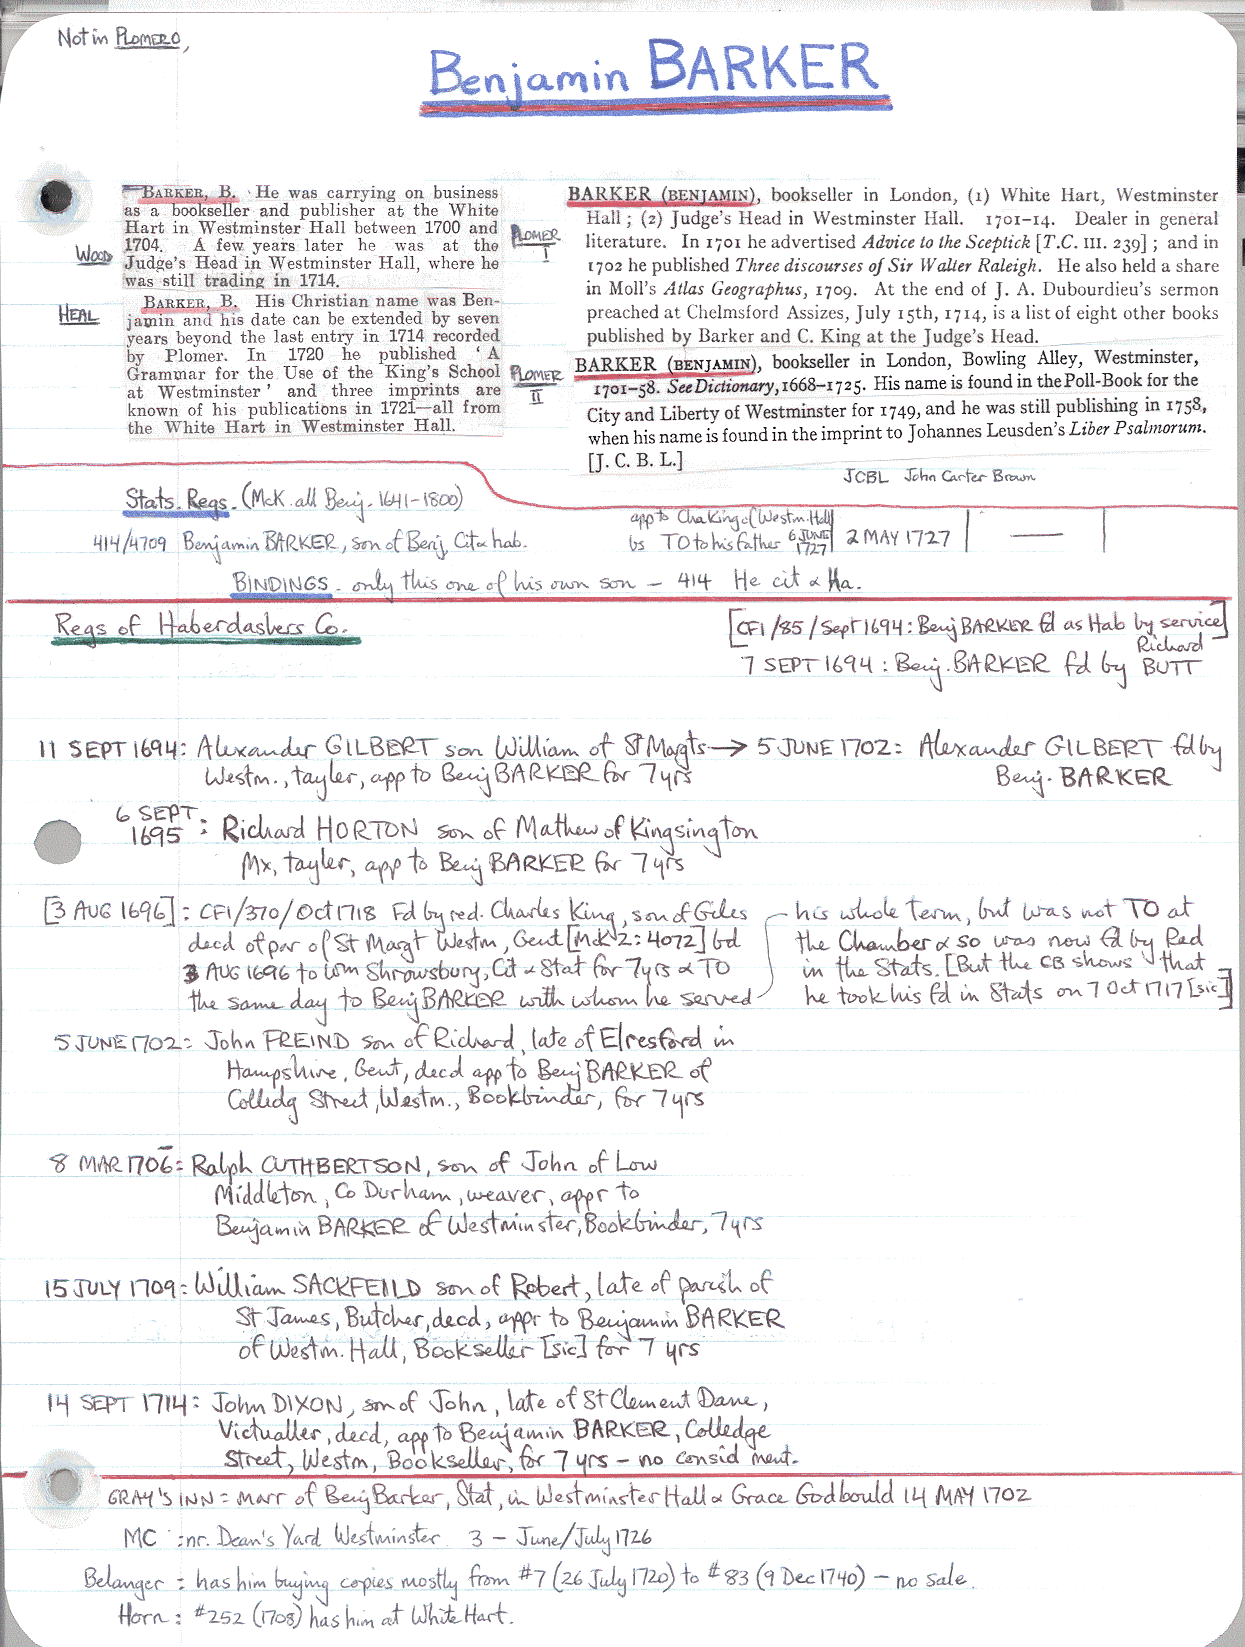 Not in PLOMER O,
Benjamin BARKER
WOOD
BARKER, B. He was carrying on business
as a bookseller and publisher at the White
Hart in Westminster Hall between 1700 and
1704. A few years later he was at the
Judge's Head in Westminster Hall, where he
was still trading in 1714.
HEAL
BARKER, B. His Christian name was Ben-
jamin and his date can be extended by seven
years beyond the last entry in 1714 recorded
by Plomer. In 1720 he published ' A
Grammar for the Use of the King's School
at Westminster ' and three imprints are
known of his publications in 1721—all from
the White Hart in Westminster Hall.
PLOMER
I
BARKER (BENJAMIN), bookseller in London, (1) White Hart, Westminster
Hall ; (2) Judge's Head in Westminster Hall. 1701-14. Dealer in general
literature. In 1701 he advertised Advice to the Sceptick [T.C. III. 239] ; and in
1702 he published Three discourses of Sir Walter Raleigh. He also held a share
in Moll's Atlas Geographus, 1709. At the end of J. A. Dubourdieu's sermon
preached at Chelmsford Assizes, July 15th, 1714, is a list of eight other books
published by Barker and C. King at the Judge's Head.
PLOMER
II
BARKER (BENJAMIN), bookseller in London, Bowling Alley, Westminster,
1701-58. See Dictionary, 1668-1725. His name is found in the Poll-Book for the
City and Liberty of Westminster for 1749, and he was still publishing in 1758,
when his name is found in the imprint to Johannes Leusden's Liber Psalmorum.
[J. C. B. L.]
JCBL John Carter Brown
Stats. Regs. (McK. all Benj. 1641-1800)
414/4709 Benjamin BARKER, son of Benj, Cit & hab.
app to Cha King of (Westm. Hall)
bs TO to his father 6 JUNE 1727
2 MAY 1727 | — |
BINDINGS - only this one of his own son - 414 He cit & Ha.
Regs of Haberdashers Co.
[CF1/85/Sept 1694: Benj BARKER fd as Hab by service]
7 SEPT 1694: Benj. BARKER fd by Richard BUTT
11 SEPT 1694: Alexander GILBERT son William of St Magts → 5 JUNE 1702: Alexander GILBERT fd by
Westm., tayler, app to Benj BARKER for 7 yrs
Benj. BARKER
6 SEPT
1695: Richard HORTON son of Mathew of Kingsington
Mx, tayler, app to Benj BARKER for 7 yrs
[3 AUG 1696]: CF1/370/Oct 1718 Fd by red. Charles King, son of Giles
decd of par of St Margt Westm, Gent [McK 2: 4072] bd
3 AUG 1696 to Wm Shrowsbury, Cit & Stat for 7 yrs & TO
the same day to Benj BARKER with whom he served
his whole term, but was not TO at
the Chamber & so was now fd by Red
in the Stats. [But the CB shows that
he took his fd in Stats on 7 Oct 1717 [sic]]
5 JUNE 1702: John FREIND son of Richard, late of Elresford in
Hampshire, Gent, decd app to Benj BARKER of
Colledg Street, Westm., Bookbinder, for 7 yrs
8 MAR 1706: Ralph CUTHBERTSON, son of John of Low
Middleton, Co Durham, weaver, appr to
Benjamin BARKER of Westminster, Bookbinder, 7 yrs
15 JULY 1709: William SACKFEILD son of Robert, late of parish of
St James, Butcher, decd, appr to Benjamin BARKER
of Westm. Hall, Bookseller [sic] for 7 yrs
14 SEPT 1714: John DIXON, son of John, late of St Clement Dane,
Victualler, decd, app to Benjamin BARKER, Colledge
Street, Westm, Bookseller, for 7 yrs - no consid ment.
GRAY'S INN = marr of Benj Barker, Stat, in Westminster Hall & Grace Godbould 14 MAY 1702
MC : nr. Dean's Yard Westminster 3 - June/July 1726
Belanger : has him buying copies mostly from #7 (26 July 1720) to #83 (9 Dec 1740) - no sale.
Horn: #252 (1708) has him at White Hart.